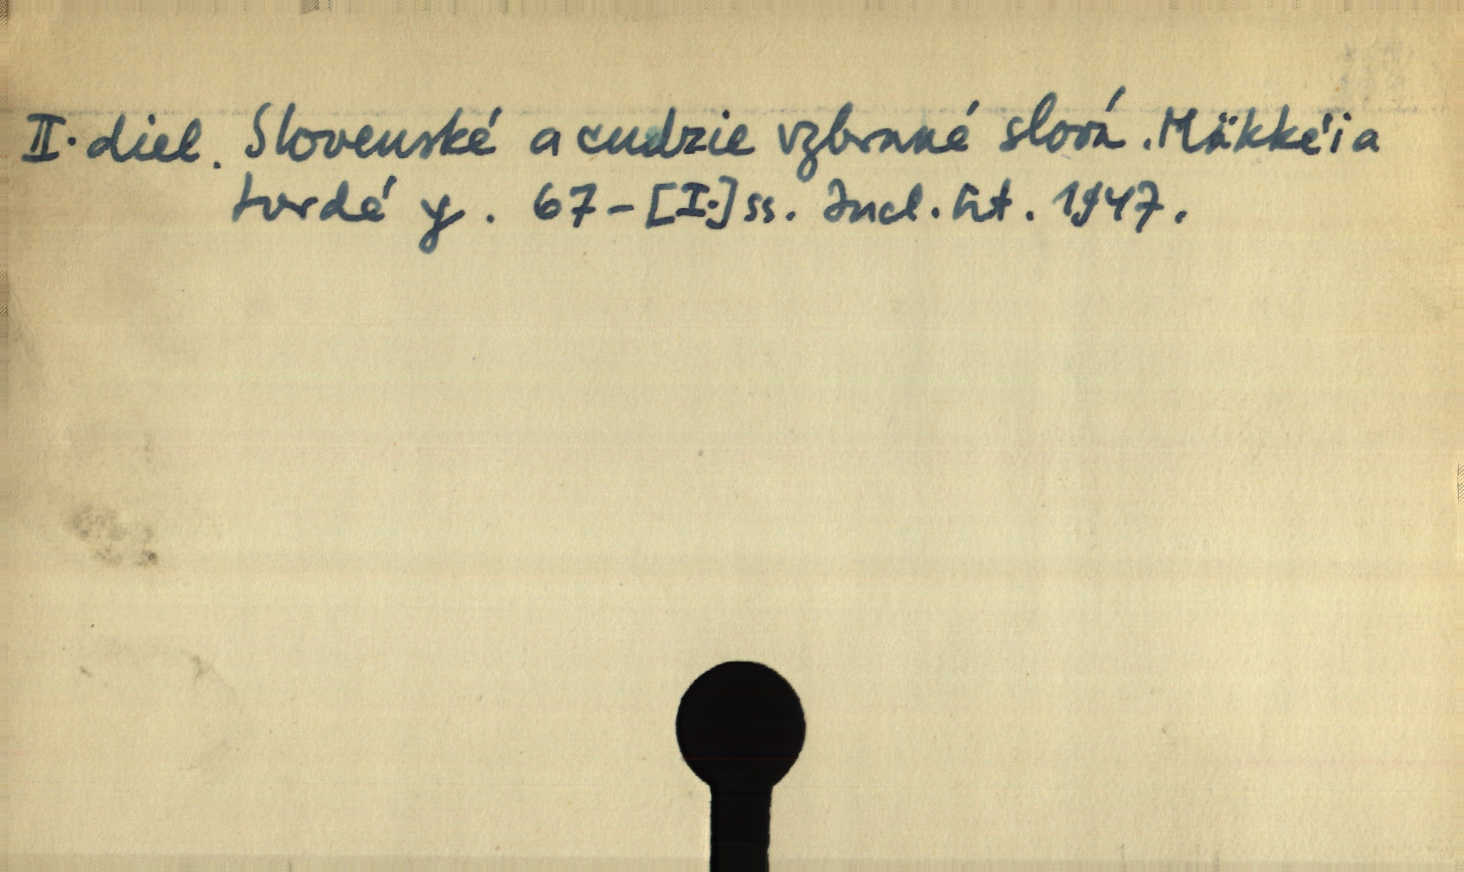 II. diel. Slovenské a cudzie vzbrané slová. Mäkké i a
tvrdé y. 67-[I.] ss. Incl. tit. 1947.